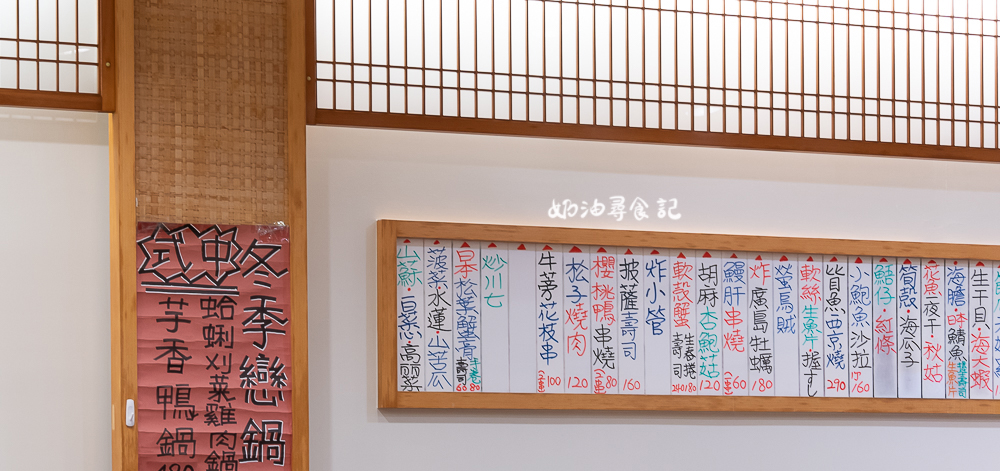 奶油尋食記
冬季戀鍋
中式
蛤蜊刈菜雞肉鍋
芋香鴨鍋
生干貝·海大蝦
海膽·日本鯖魚
花魚夜干·秋姑
筍殼·海瓜子
鮚仔·紅條
小鮑魚沙拉 160
皆魚西京燒 290
軟絲 生魚片 握すし
螢烏賊
炸廣島牡蠣 180
鰻肝串燒 60
胡麻杏鮑菇 120
軟殼蟹 壽司 生春捲 180
炸小管
披薩壽司 160
櫻桃鴨串燒 80
松子燒肉 120
牛蒡花枝串 100
炒川七
日本松葉蟹膏 壽司 68
菠菜·水蓮·山苦瓜
山蘇·皇宮菜·高麗菜